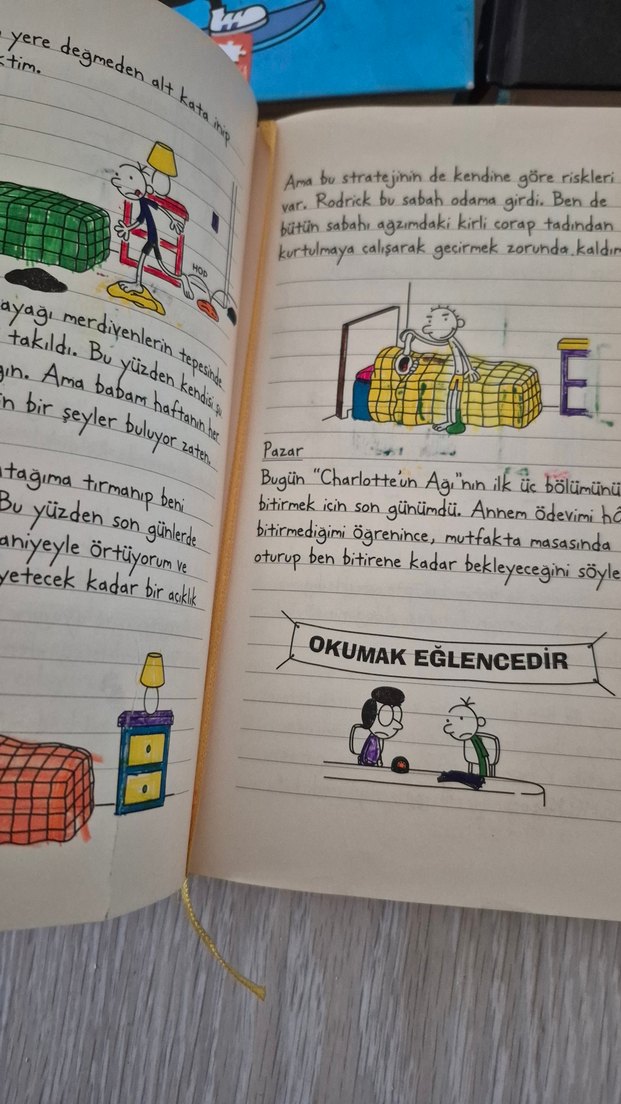 yere değmeden alt kata inip
tim.
HOP
ayağı merdivenlerin tepesinde
takıldı. Bu yüzden kendisi
Ama babam haftanın her
bir şeyler buluyor zaten.
tırmanıp beni
Bu yüzden son günlerde
örtüyorum ve
yetecek kadar bir açıklık
Ama bu stratejinin de kendine göre riskleri
var. Rodrick bu sabah odama girdi. Ben de
bütün sabahı ağzımdaki kirli corap tadından
kurtulmaya calışarak gecirmek zorunda kaldım
Pazar
Bugün "Charlotte'un Ağı"nın ilk üç bölümünü
bitirmek icin son günümdü. Annem ödevimi
bitirmediğimi öğrenince, mutfakta masasında
oturup ben bitirene kadar bekleyeceğini söyle
OKUMAK EĞLENCEDİR